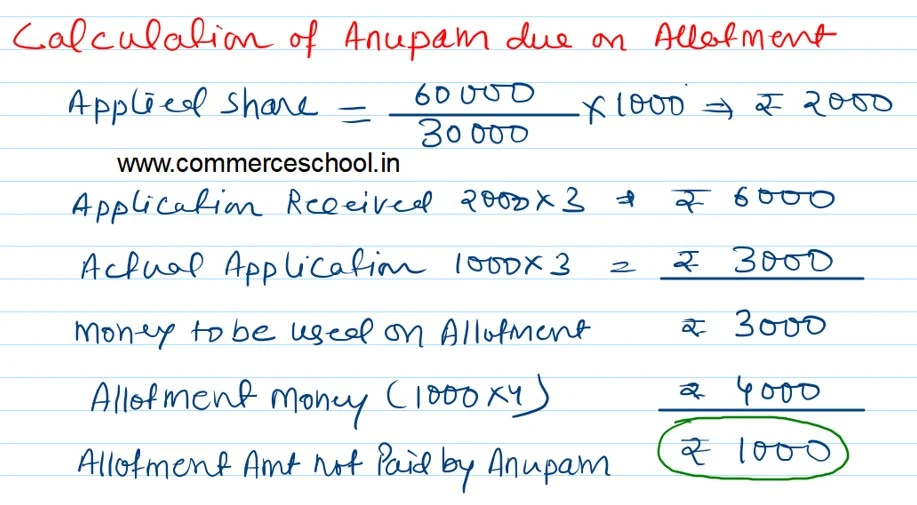 Calculation of Anupam due on Allotment
Applied Share = 60000/30000 × 1000 ⇒ ₹ 2000
www.commerceschool.in
Application Received 2000 × 3 ⇒ ₹ 6000
Actual Application 1000 × 3 = ₹ 3000
Money to be used on Allotment ₹ 3000
Allotment Money (1000 × 4) ₹ 4000
Allotment Amt not Paid by Anupam ₹ 1000